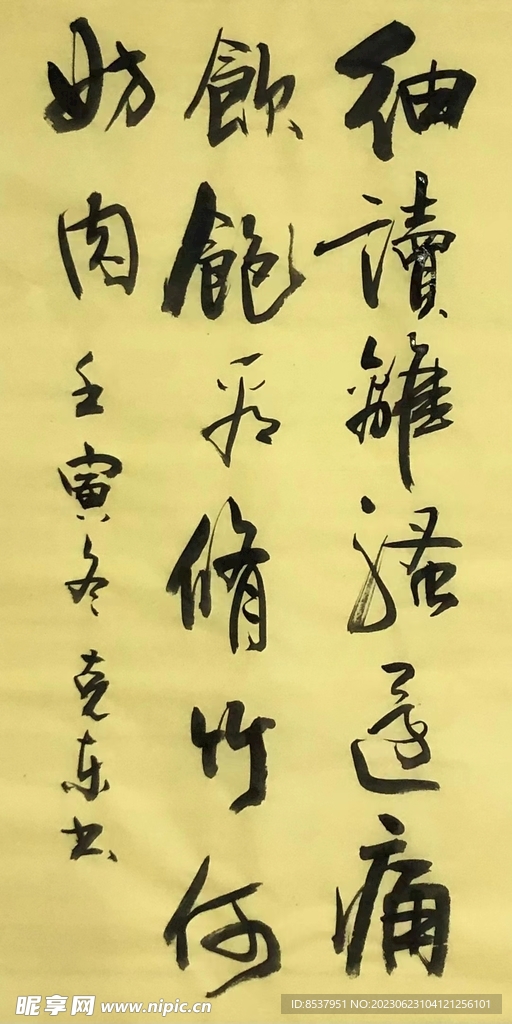 細讀離騷還痛
飲飽看脩竹何
妨肉 壬寅冬克东书
昵享网 www.nipic.cn
ID:8537951 NO:20230623104121256101